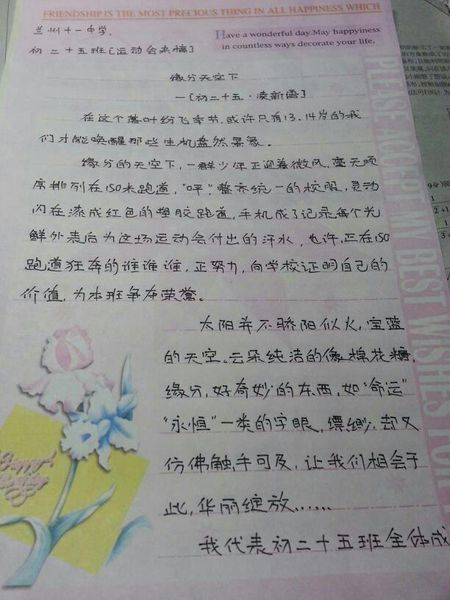 FRIENDSHIP IS THE MOST PRECIOUS THING IN ALL HAPPINESS WHICH
兰州十一中学.
初二十五班[运动会来稿]
Have a wonderful day.May happyiness
in countless ways decorate your life.
缘分天空下
—[初二十五·凌新语]
在这个落叶纷飞季节,或许只有13、14岁的我
们才能唤醒那些生机盎然景象。
缘分的天空下,一群少年正迎着微风,毫无顺
席排列在150米跑道,"呯",整齐统一的校服,灵动
闪在漆成红色的塑胶跑道,手机成了记录每个光
鲜外表后为这场运动会付出的汗水,也许,正在150
跑道狂奔的谁谁谁,正努力,向学校证明自己的
价值,为本班争夺荣誉。
太阳并不骄阳似火,宝蓝
的天空。云朵纯洁的像棉花糖,
缘分,好奇妙的东西,如"命运"
"永恒"一类的字眼,缥缈,却又
仿佛触手可及,让我们相会于
此,华丽绽放……
我代表初二十五班全体成
PLEASE ACCEPT MY BEST WISHES FOR